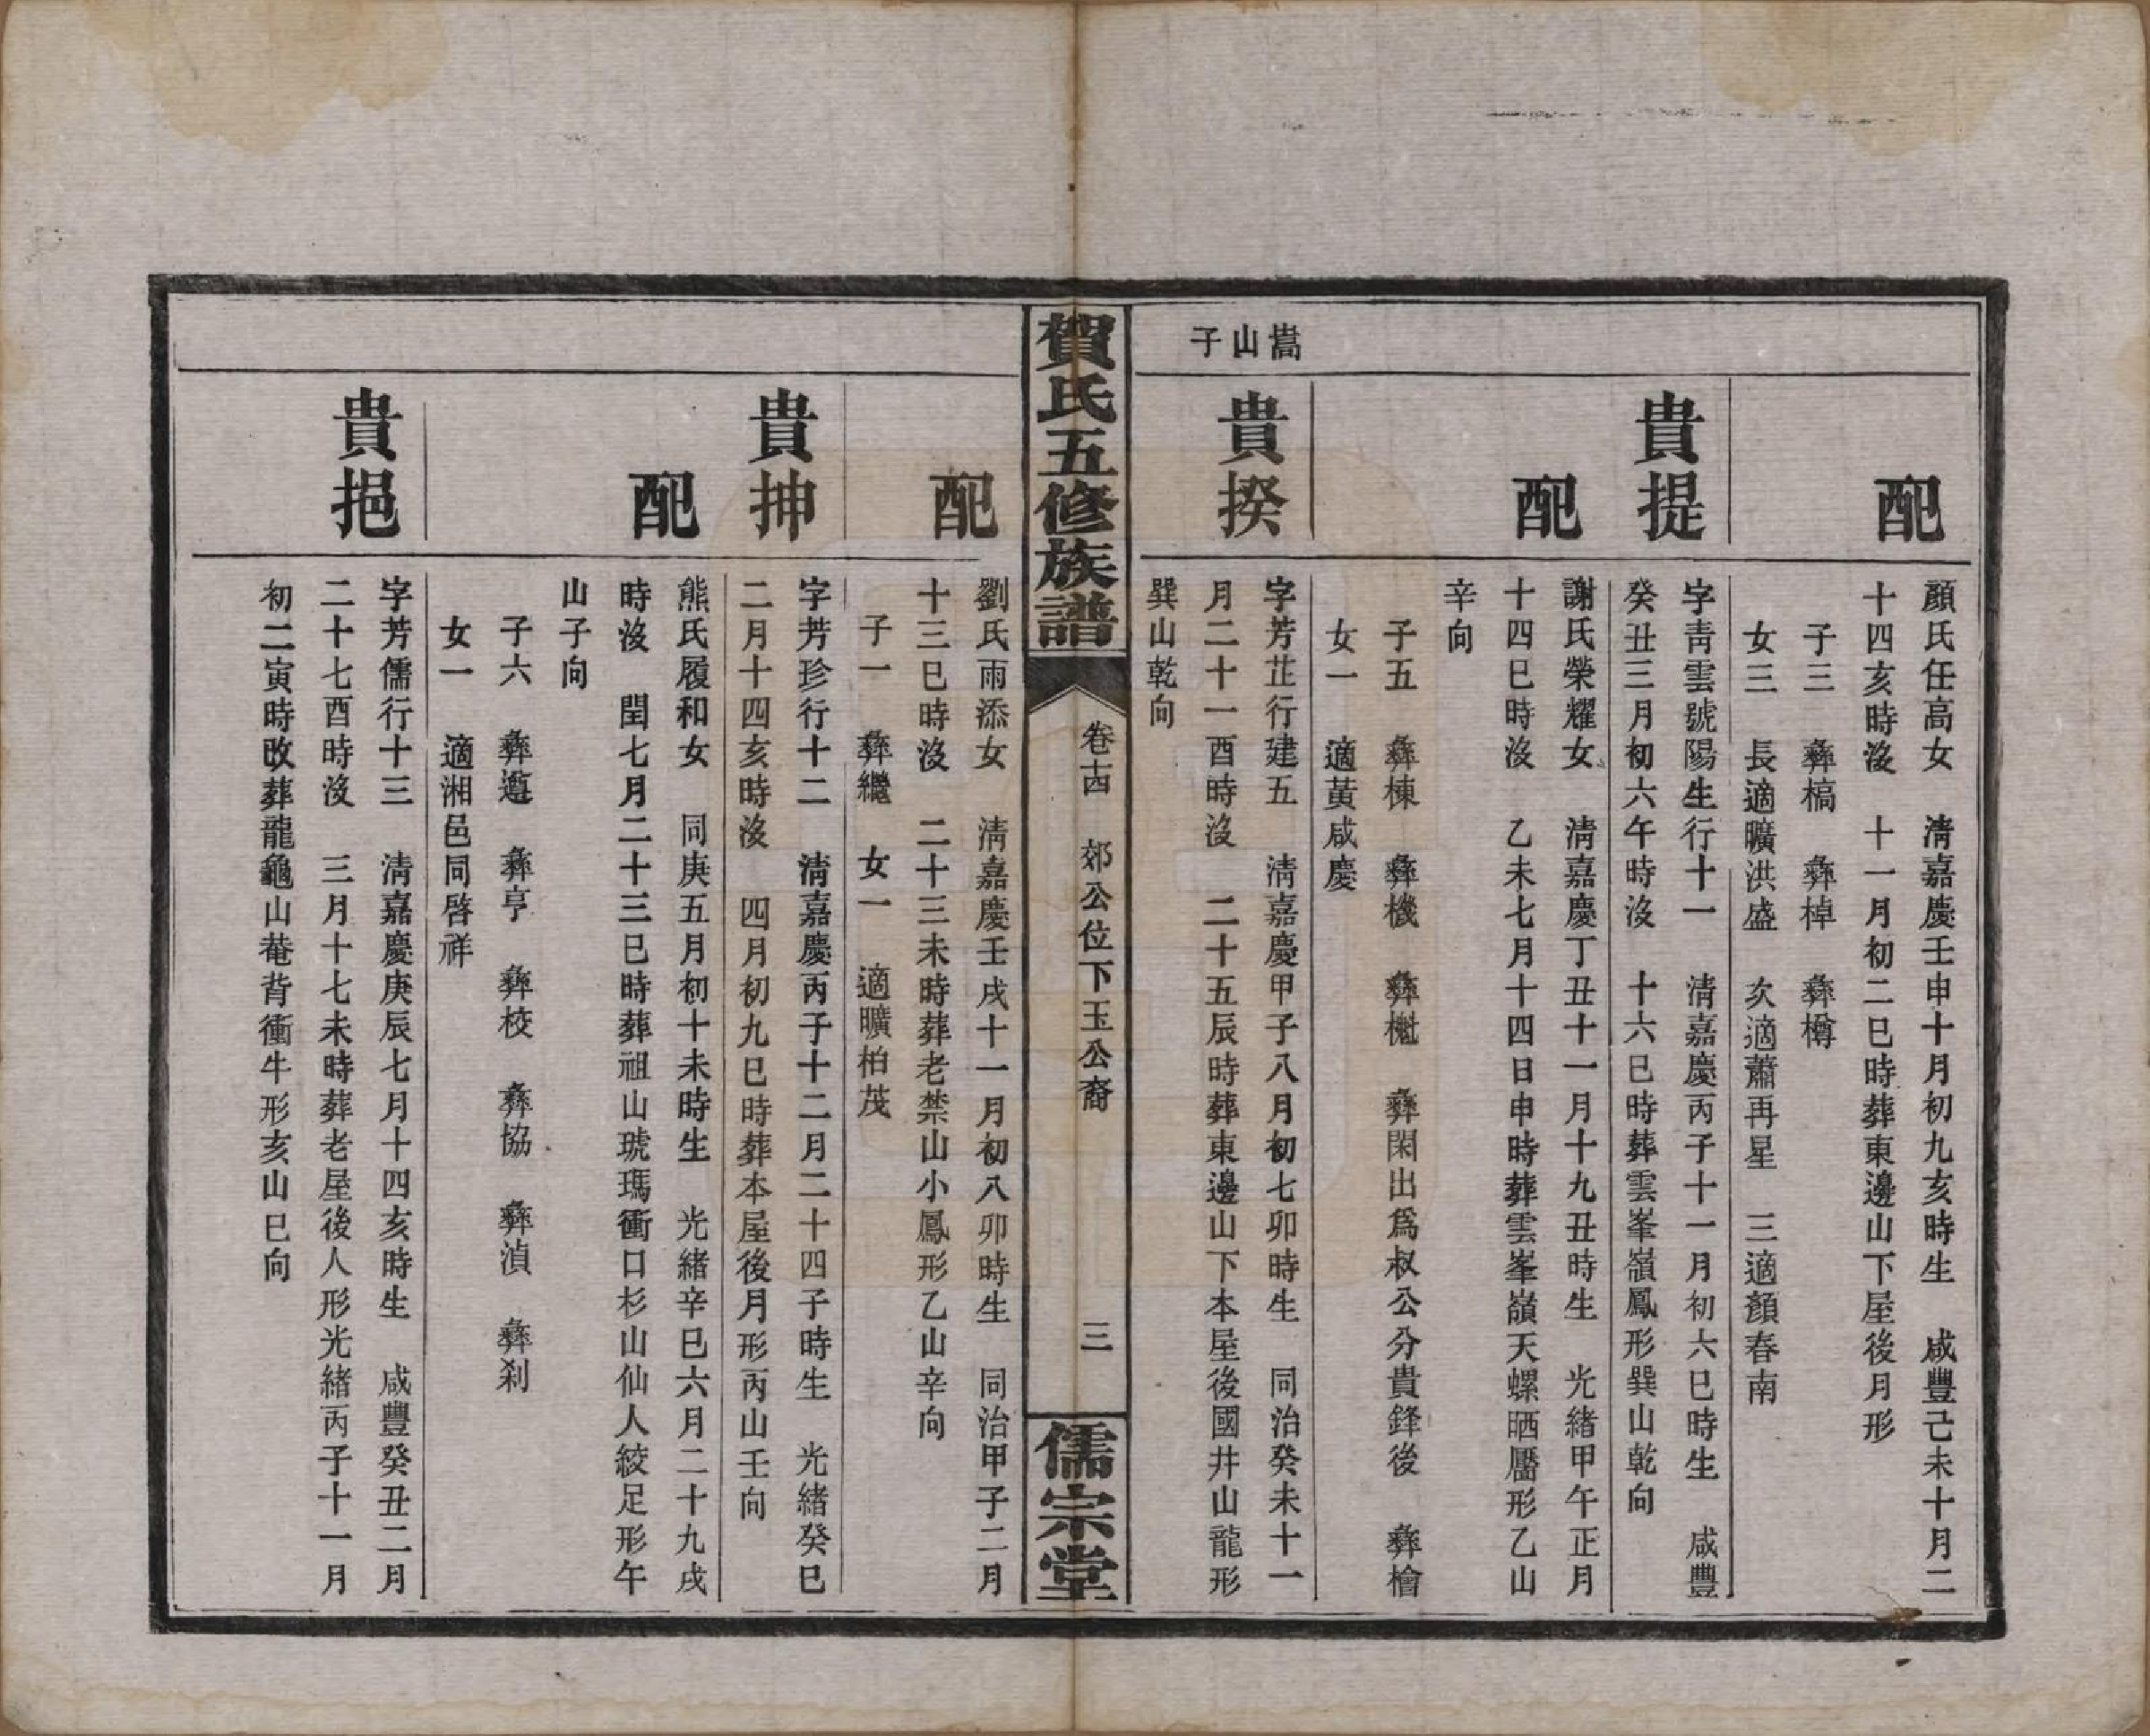 配
顏氏任高女　清嘉慶壬申十月初九亥時生　咸豐己未十月二
十四亥時沒　十一月初二巳時葬東邊山下屋後月形
子三　彝槁　彝棹　彝樽
女三　長適曠洪盛　次適蕭再星　三適顏春南
貴提
字青雲號陽生行十一　清嘉慶丙子十一月初六巳時生　咸豐
癸丑三月初六午時沒　十六巳時葬雲峯嶺鳳形巽山乾向
配
謝氏榮耀女　清嘉慶丁丑十一月十九丑時生　光緒甲午正月
十四巳時沒　乙未七月十四日申時葬雲峯嶺天螺晒靨形乙山
辛向
子五　彝棟　彝機　彝　彝閑出爲叔公分貴鋒後　彝檜
女一　適黃咸慶
嵩山子
貴揆
字芳芷行建五　清嘉慶甲子八月初七卯時生　同治癸未十一
月二十一酉時沒　二十五辰時葬東邊山下本屋後國井山龍形
巽山乾向
賀氏五修族譜
卷十四　郊公位下玉公裔　三
儒宗堂
配
劉氏雨添女　清嘉慶壬戌十一月初八卯時生　同治甲子二月
十三巳時沒　二十三未時葬老禁山小鳳形乙山辛向
子一　彝繼　女一　適曠柏茂
貴抻
字芳珍行十二　清嘉慶丙子十二月二十四子時生　光緒癸巳
二月十四亥時沒　四月初九巳時葬本屋後月形丙山壬向
配
熊氏履和女　同庚五月初十未時生　光緒辛巳六月二十九戌
時沒　閏七月二十三巳時葬祖山琥瑪衝口杉山仙人絞足形午
山子向
子六　彝遵　彝亨　彝校　彝協　彝滇　彝刹
女一　適湘邑同啓祥
貴挹
字芳儒行十三　清嘉慶庚辰七月十四亥時生　咸豐癸丑二月
二十七酉時沒　三月十七未時葬老屋後人形光緒丙子十一月
初二寅時改葬龍龜山菴背衝牛形亥山巳向